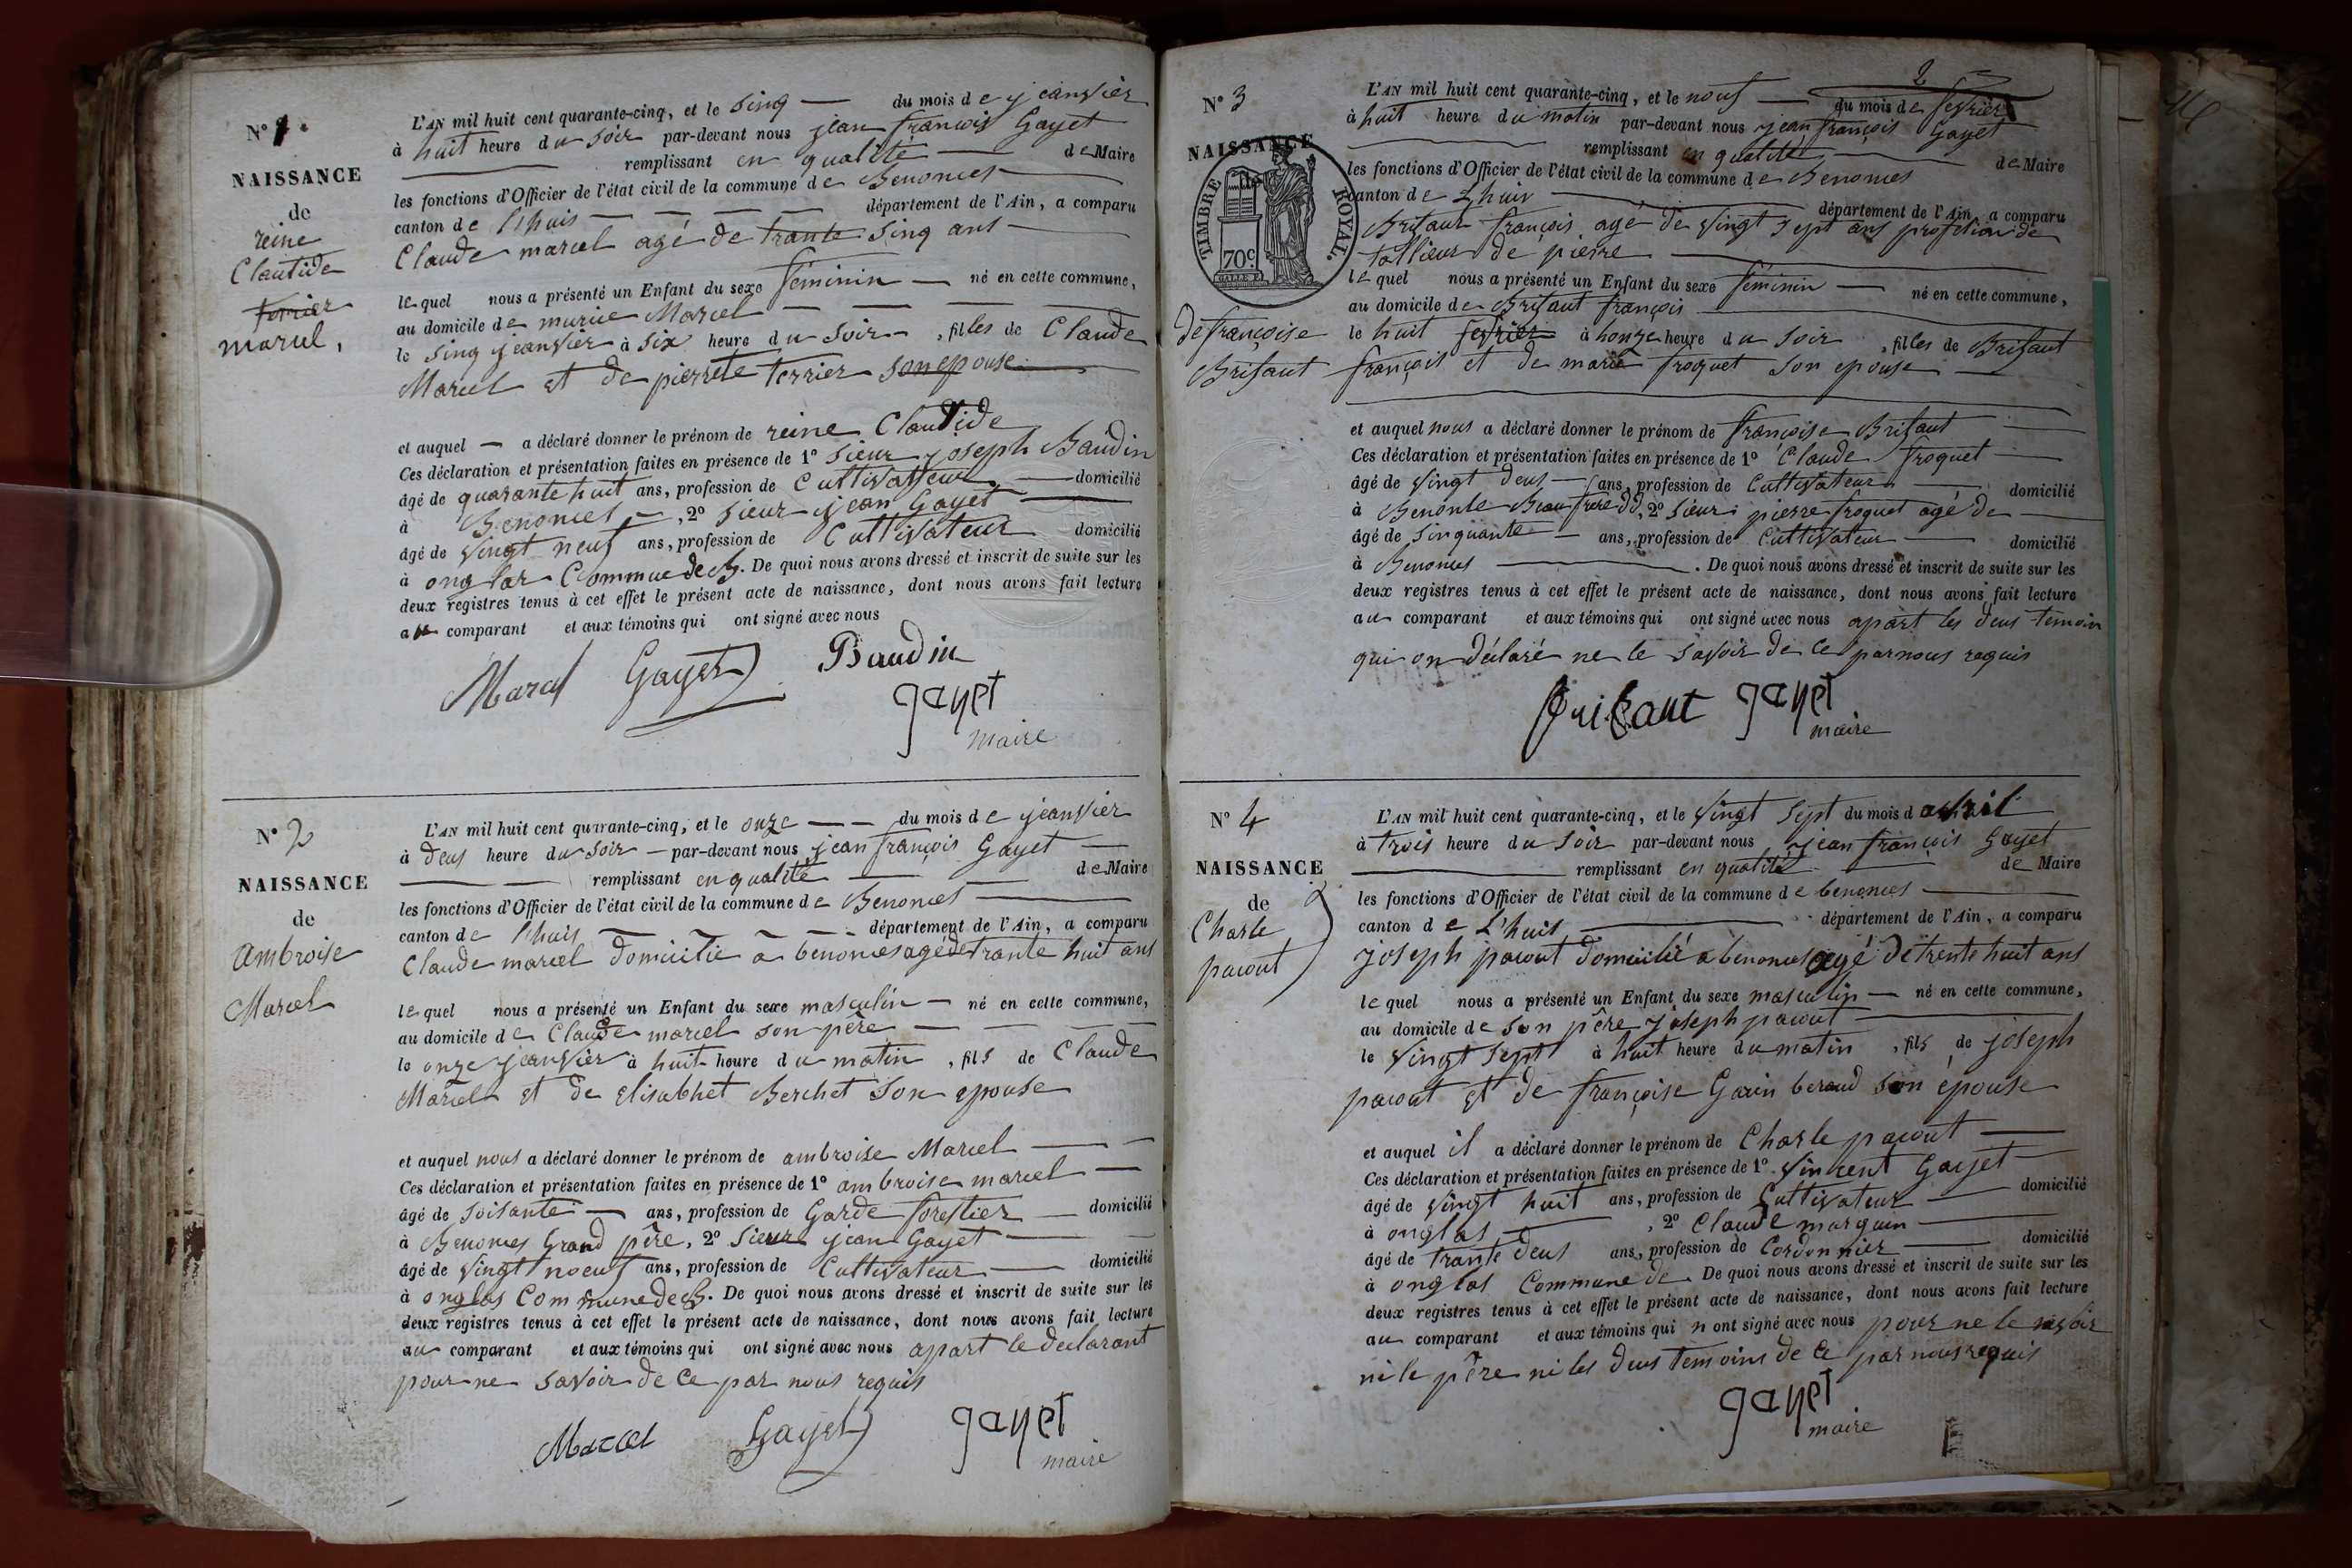 N° 1.
NAISSANCE
de
reine
Clautide
terrier
marcel,
L'AN mil huit cent quarante-cinq, et le sinq du mois de jeanvier
à huit heure du soir par-devant nous jean francois Gayet
remplissant en qualité de Maire
les fonctions d'Officier de l'état civil de la commune de Benonces
canton de l'huis département de l'Ain, a comparu
Claude marcel agé de trante sinq ans
lequel nous a présenté un Enfant du sexe féminin né en cette commune,
au domicile de Marcel
le sinq jeanvier à six heure du soir, filles de Claude
Marcel et de pierrete terrier son epouse
et auquel a déclaré donner le prénom de reine Clautide
Ces déclaration et présentation faites en présence de 1° sieur joseph Baudin
âgé de quarante huit ans, profession de Cultivateur domicilié
à Benonces, 2° sieur jean Gayet
âgé de vingt neuf ans, profession de Cultivateur domicilié
à onglas Commue de B. De quoi nous avons dressé et inscrit de suite sur les
deux registres tenus à cet effet le présent acte de naissance, dont nous avons fait lecture
au comparant et aux témoins qui ont signé avec nous
Marcel Gayet Baudin
gayet
maire
N° 2
NAISSANCE
de
ambroise
Marcel
L'AN mil huit cent quarante-cinq, et le onze du mois de jeanvier
à deus heure du soir par-devant nous jean françois Gayet
remplissant en qualité de Maire
les fonctions d'Officier de l'état civil de la commune de Benonces
canton de l'huis département de l'Ain, a comparu
Claude marcel domicilié a benonces agé de trante huit ans
lequel nous a présenté un Enfant du sexe masculin né en cette commune,
au domicile de Claude marcel son père
le onze jeanvier à huit heure du matin, fils de Claude
Marcel et de Elisabhet Berchet son epouse
et auquel nous a déclaré donner le prénom de ambroise Marcel
Ces déclaration et présentation faites en présence de 1° ambroise marcel
âgé de soisante ans, profession de Garde forestier domicilié
à Benonces Grand père, 2° sieur jean Gayet
âgé de vingt noeuf ans, profession de Cultivateur domicilié
à onglas Commune de B. De quoi nous avons dressé et inscrit de suite sur les
deux registres tenus à cet effet le présent acte de naissance, dont nous avons fait lecture
au comparant et aux témoins qui ont signé avec nous apart le declarant
pour ne savoir de ce par nous requis
Marcel Gayet gayet
maire
2
N° 3
NAISSANCE
TIMBRE ROYAL.
70c
de françoise
Brifaut
L'AN mil huit cent quarante-cinq, et le nouf du mois de fevrier
à huit heure du matin par-devant nous jean françois Gayet
remplissant en qualité de Maire
les fonctions d'Officier de l'état civil de la commune de Benonces
canton de Lhuis département de l'Ain a comparu
Brifaut françois agé de vingt sept ans profetion de
tallieur de pierre
lequel nous a présenté un Enfant du sexe féminin né en cette commune,
au domicile de Brifaut françois
le huit fevrier à honze heure du soir, filles de Brifaut
françois et de marie froquet son epouse
et auquel nous a déclaré donner le prénom de françoise Brifaut
Ces déclaration et présentation faites en présence de 1° Claude froquet
âgé de vingt deus ans, profession de Cultivateur domicilié
à Benonce Beau frere dd, 2° sieur pierre froquet agé de
âgé de sinquante ans, profession de Cultivateur domicilié
à Benonces. De quoi nous avons dressé et inscrit de suite sur les
deux registres tenus à cet effet le présent acte de naissance, dont nous avons fait lecture
au comparant et aux témoins qui ont signé avec nous apart les deus temoin
qui on déclaré ne le savoir de ce par nous requis
Brifaut gayet
maire
N° 4
NAISSANCE
de
Charle
pacout
L'AN mil huit cent quarante-cinq, et le vingt sept du mois d avril
à trois heure du soir par-devant nous jean françois Gayet
remplissant en qualité de Maire
les fonctions d'Officier de l'état civil de la commune de benonces
canton de L'huis département de l'Ain, a comparu
joseph pacout domicilié a benonces agé de trente huit ans
lequel nous a présenté un Enfant du sexe masculin né en cette commune,
au domicile de son père joseph pacout
le vingt sept à huit heure du matin, fils de joseph
pacout et de françoise Garin beraud son épouse
et auquel il a déclaré donner le prénom de Charle pacout
Ces déclaration et présentation faites en présence de 1° vincent Gayet
âgé de vingt huit ans, profession de Cultivateur domicilié
à onglas, 2° Claude marguin
âgé de trante deus ans, profession de Cordonnier domicilié
à onglas Commune de. De quoi nous avons dressé et inscrit de suite sur les
deux registres tenus à cet effet le présent acte de naissance, dont nous avons fait lecture
au comparant et aux témoins qui n ont signé avec nous pour ne le savoir
ni le père ni les deus temoins de ce par nous requis
gayet
maire